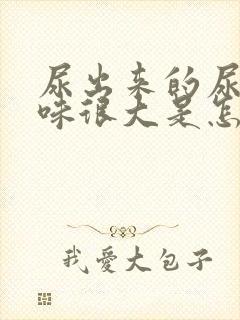 尿出来的尿
味很大是怎
我愛大包子